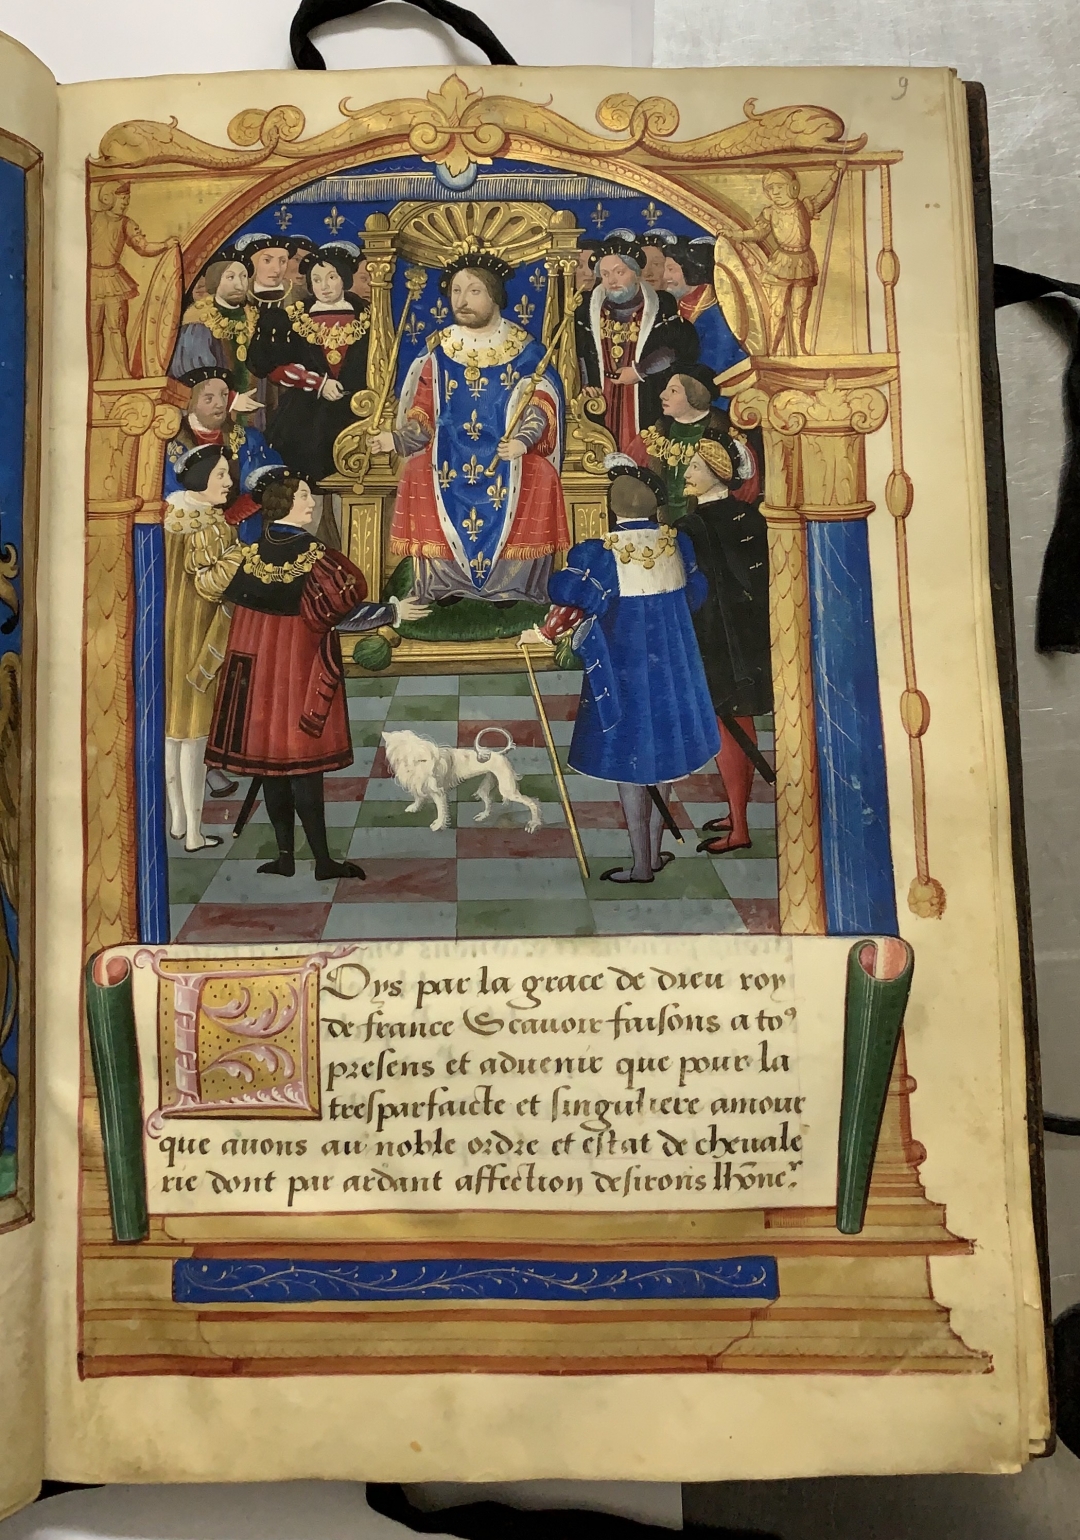 9
Loys par la grace de dieu roy
de france Scauoir faisons a to⁹
presens et aduenir que pour la
tresparfaicte et singuliere amour
que auons au noble ordre et estat de cheuale
rie dont par ardant affection desirons lhōne.r